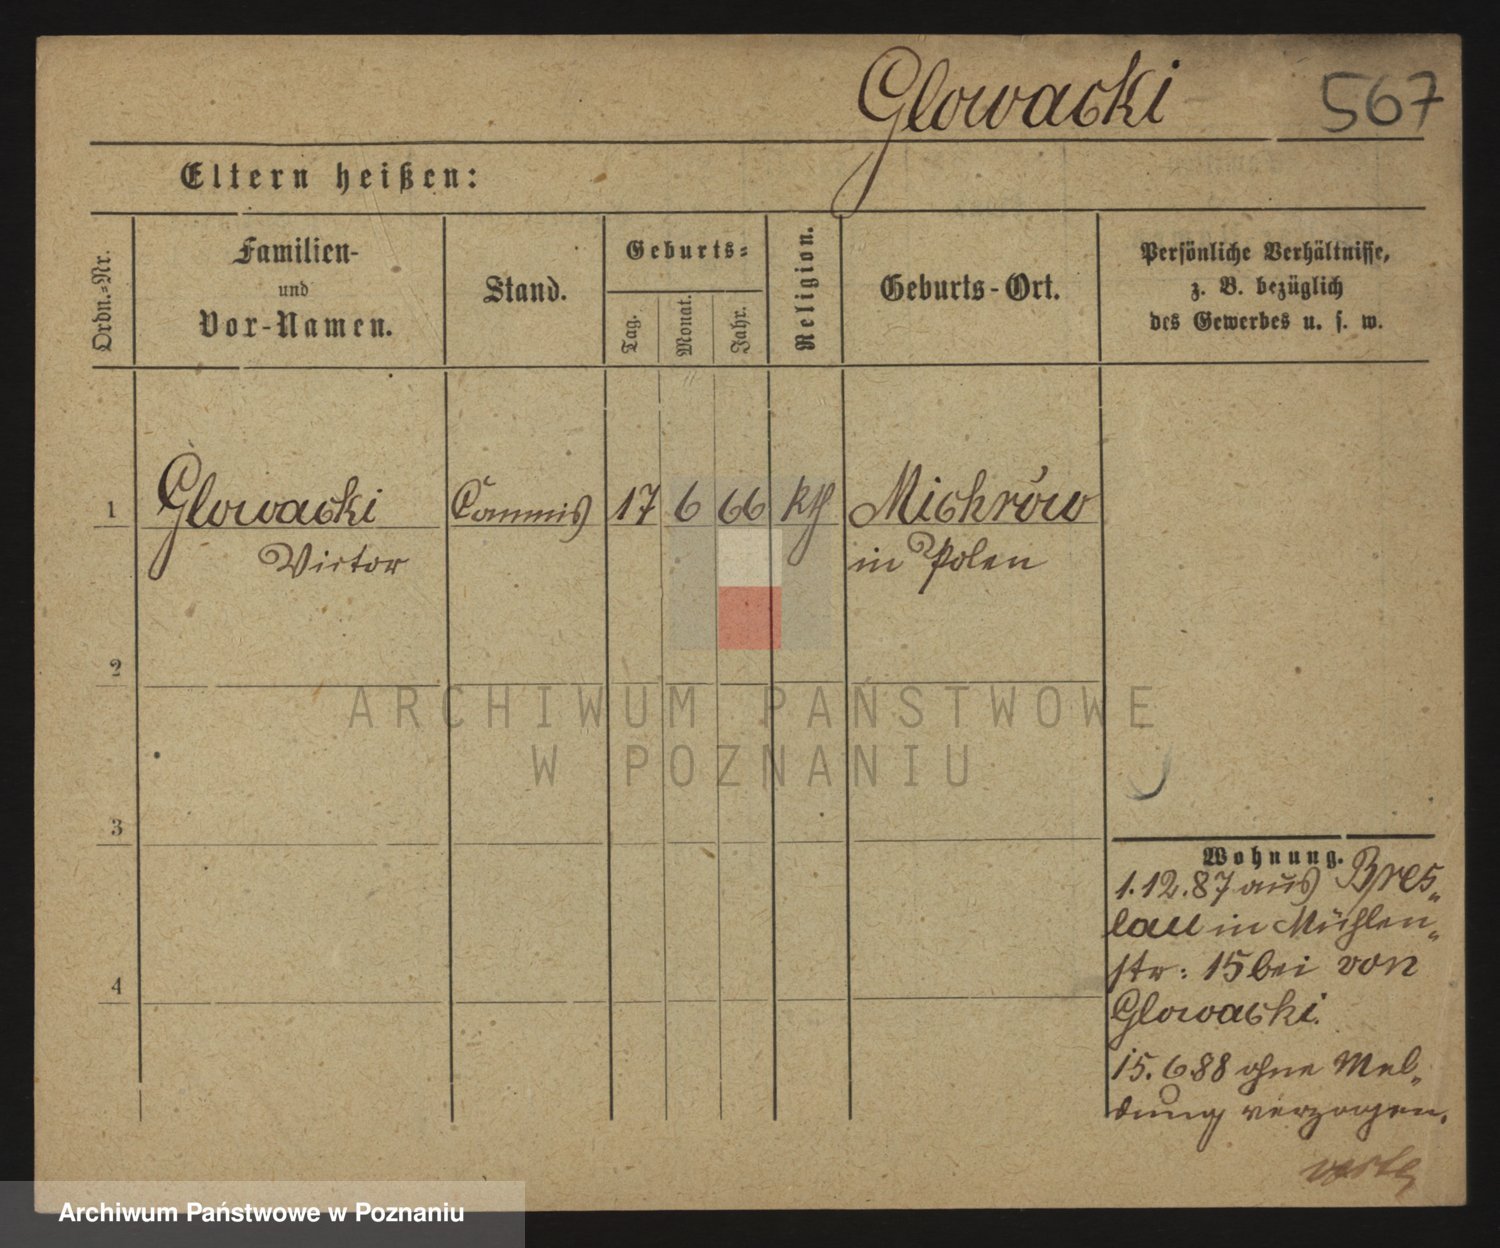 Glowacki 567
Eltern heißen:
Ordn.=Nr.
Familien-
und
Vor-Namen.
Stand.
Geburts=
Tag.
Monat.
Jahr.
Religion.
Geburts-Ort.
Persönliche Verhältnisse,
z. B. bezüglich
des Gewerbes u. s. w.
1 Glowacki Commis 17 6 66 kth Michrów
Victor in Polen
2
ARCHIWUM PAŃSTWOWE
W POZNANIU
3
Wohnung.
1.12.87 aus Bres„
lau in Mühlen„
str: 15 bei von
Glowacki.
4
15.6.88 ohne Mel„
dung verzogen.
Archiwum Państwowe w Poznaniu